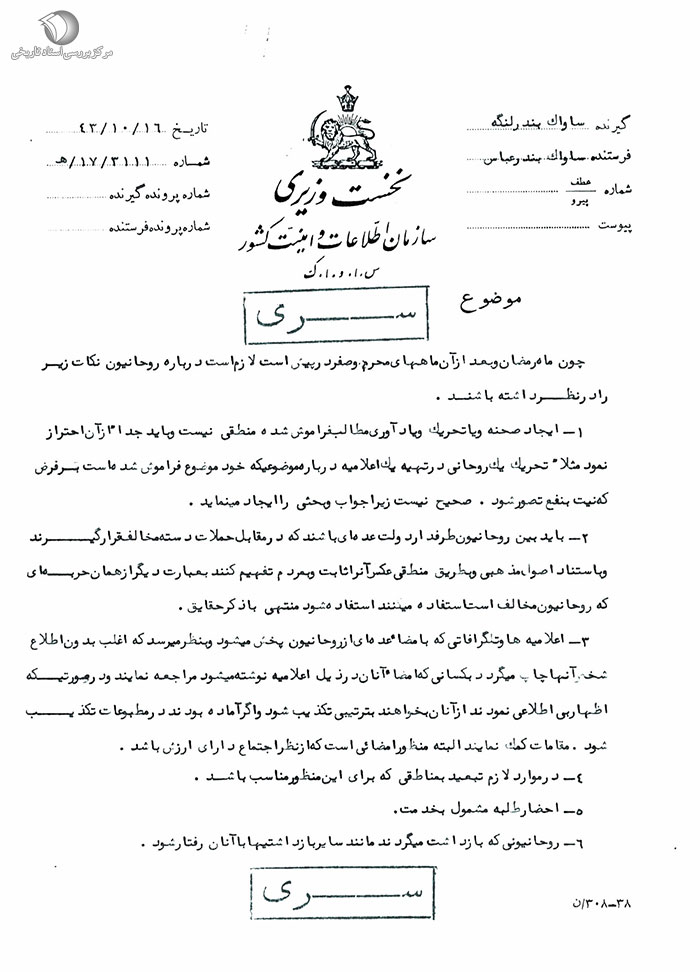 مرکز بررسی اسناد تاریخی
گیرنده ساواك بندر لنگه
فرستنده ساواك بندر عباس
شماره عطف پیرو
پیوست
نخست وزیری
سازمان اطلاعات و امنیت کشور
س.ا.و.ا.ک
تاریخ ٤٣/١٠/١٦
شماره ٣١١١/١٧/هـ
شماره پرونده گیرنده
شماره پرونده فرستنده
موضوع
سری
چون ماه رمضان و بعد از آن ماههای محرم وصفر در پیش است لازم است درباره روحانیون نکات زیر
را در نظر داشته باشند .
١ـ ایجاد صحنه ویا تحریك ویادآوری مطالب فراموش شده منطقی نیست وباید جداً از آن احتراز
نمود مثلاً تحریك یك روحانی در تهیه یك اعلامیه درباره موضوعیکه خود موضوع فراموش شده است بر فرض
که نیت بنفع تصور شود . صحیح نیست زیرا جواب وبحثی را ایجاد مینماید .
٢ـ باید بین روحانیون طرفدار دولت عده ای باشند که در مقابل حملات دسته مخالف قرار گیرند
وباستناد اصول مذهبی وبطریق منطقی عکس آنرا ثابت وبمردم تفهیم کنند بعبارت دیگر از همان حربه ای
که روحانیون مخالف است استفاده میکنند استفاده شود منتهی باذکر حقایق .
٣ـ اعلامیه ها وتلگرافاتی که بامضاء عده ای از روحانیون پخش میشود وبنظر میرسد که اغلب بدون اطلاع
شخص آنها چاپ میگردد بکسانی که امضاء آنان در ذیل اعلامیه نوشته میشود مراجعه نمایند ودر صورتیکه
اظهار بی اطلاعی نمودند از آنان بخواهند بترتیبی تکذیب شود واگر آماده بودند در مطبوعات تکذیب
شود . مقامات کمك نمایند البته منظور امضائی است که از نظر اجتماع دارای ارزش باشد .
٤ـ در موارد لازم تبعید بمناطقی که برای این منظور مناسب باشد .
٥ـ احضار طلبه مشمول بخدمت .
٦ـ روحانیونی که بازداشت میگردند مانند سایر بازداشتیها با آنان رفتار شود .
سری
٣٨ـ٣٠٨/ن